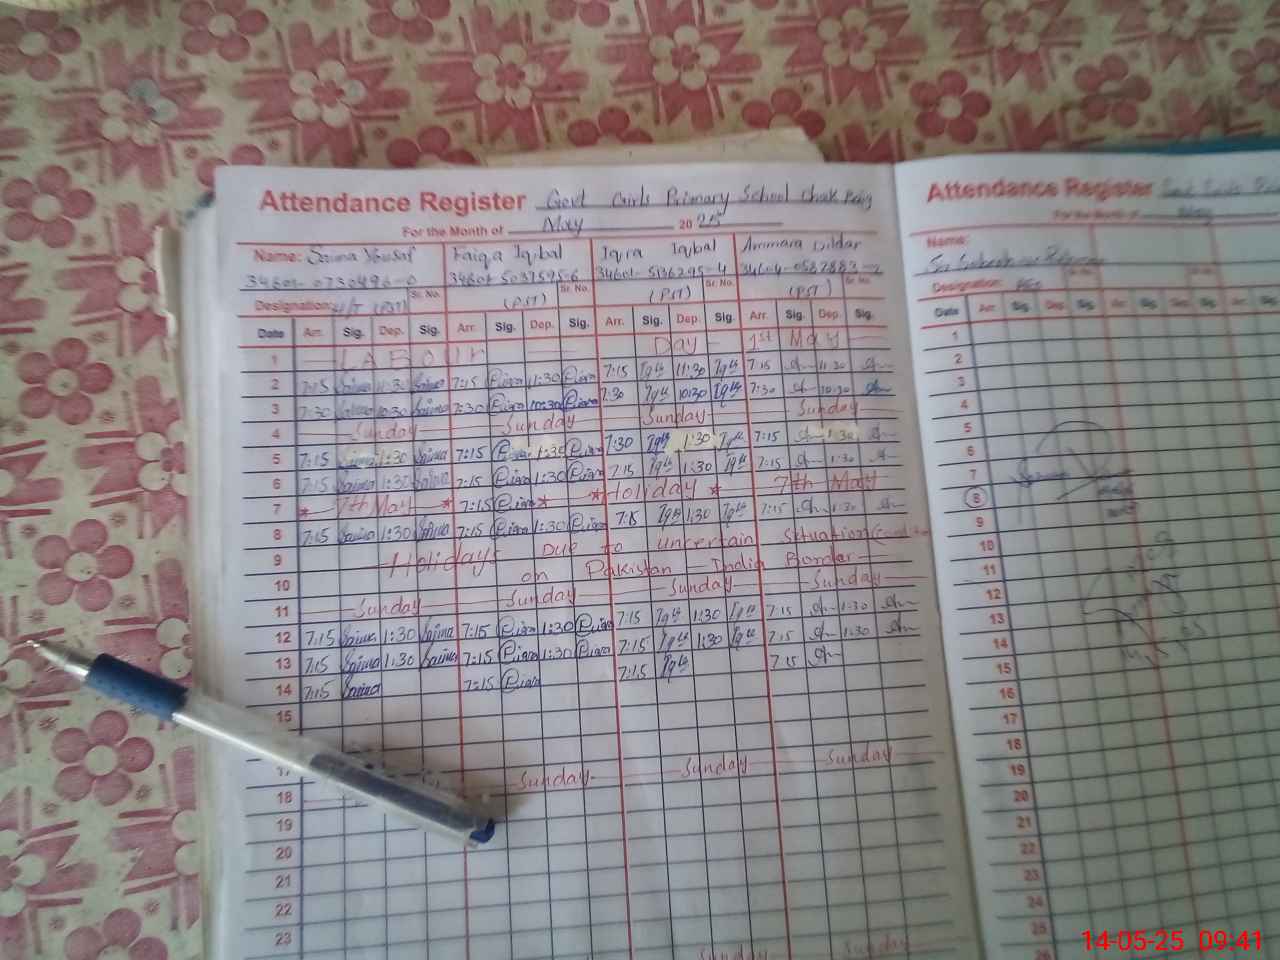 Attendance Register Govt Girls Primary School Chak
For the Month of May 2025
Name: Saima Yousaf Faiqa Iqbal Iqra Iqbal Ammara Dildar
34601-0730496-0 34601-5037595-6 34601-5136295-4
Designation: H/T (PST) Sr. No. (PST) Sr. No. (PST) Sr. No. (PST) Sr. No.
Date Arr. Sig. Dep. Sig. Arr. Sig. Dep. Sig. Arr. Sig. Dep. Sig. Arr. Sig. Dep. Sig.
1 LABOUR Day 1st May
2 7:15 Saima 1:30 Saima 7:15 1:30 7:15 Iqra 11:30 Iqra 7:15 11:30
3 7:30 Saima 10:30 Saima 7:30 10:30 7:30 Iqra 10:30 Iqra 7:30 10:30
4 Sunday Sunday Sunday Sunday
5 7:15 Saima 1:30 Saima 7:15 1:30 7:30 Iqra 1:30 Iqra 7:15 1:30
6 7:15 Saima 1:30 Saima 7:15 1:30 7:15 Iqra 1:30 Iqra 7:15 1:30
7 * 7th May * 7:15 * * Holiday * 7th May
8 7:15 Saima 1:30 Saima 7:15 1:30 7:15 Iqra 1:30 Iqra 7:15 1:30
9 Holidays Due to uncertain Situation
10 on Pakistan - India Border
11 Sunday Sunday Sunday Sunday
12 7:15 Saima 1:30 Saima 7:15 1:30 7:15 Iqra 1:30 Iqra 7:15 1:30
13 7:15 Saima 1:30 Saima 7:15 1:30 7:15 Iqra 1:30 Iqra 7:15 1:30
14 7:15 Saima 7:15 7:15 Iqra 7:15
15
17
18 Sunday Sunday Sunday
19
20
21
22
23
Sunday Sunday
Attendance Register
For the Month of May
Name:
Designation:
Date Arr. Sig. Dep. Sig. Arr. Sig. Dep. Sig.
1
2
3
4
5
6
7
8
9
10
11
12
13
14
15
16
17
18
19
20
21
22
23
25
26
14-05-25 09:41